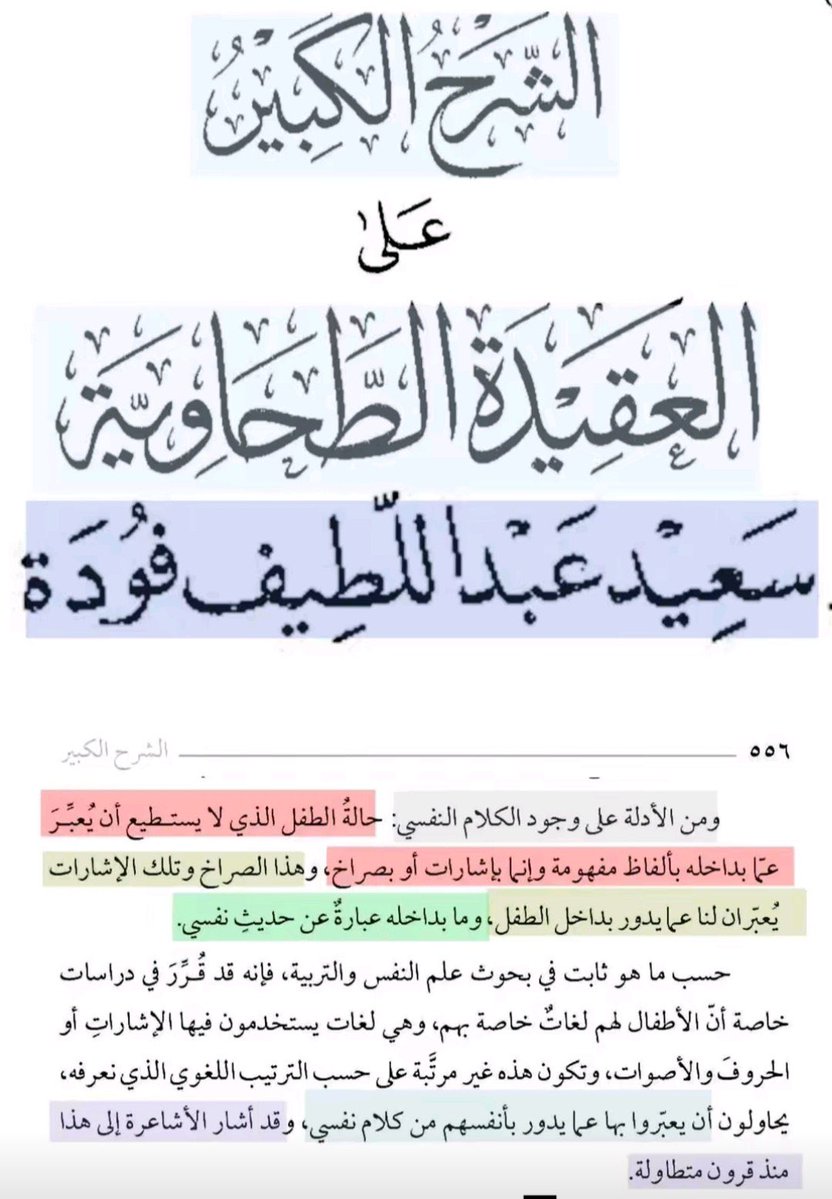 الشَّرْحُ الْكَبِيْرُ
عَلىٰ
العَقِيْدَةِ الطَّحَاوِيَّةِ
سَعِيْد عَبْد اللَّطِيف فُودَة
٥٥٦ الشرح الكبير
ومن الأدلة على وجود الكلام النفسي: حالةُ الطفل الذي لا يستطيع أن يُعبِّرَ
عمّا بداخله بألفاظ مفهومة وإنما بإشارات أو بصراخ، وهذا الصراخ وتلك الإشارات
يُعبّران لنا عما يدور بداخل الطفل، وما بداخله عبارةٌ عن حديثِ نفسي.
حسب ما هو ثابت في بحوث علم النفس والتربية، فإنه قد قُرِّرَ في دراسات
خاصة أنّ الأطفال لهم لغاتٌ خاصة بهم، وهي لغات يستخدمون فيها الإشاراتِ أو
الحروفَ والأصوات، وتكون هذه غير مرتَّبة على حسب الترتيب اللغوي الذي نعرفه،
يحاولون أن يعبّروا بها عما يدور بأنفسهم من كلام نفسي، وقد أشار الأشاعرة إلى هذا
منذ قرون متطاولة.